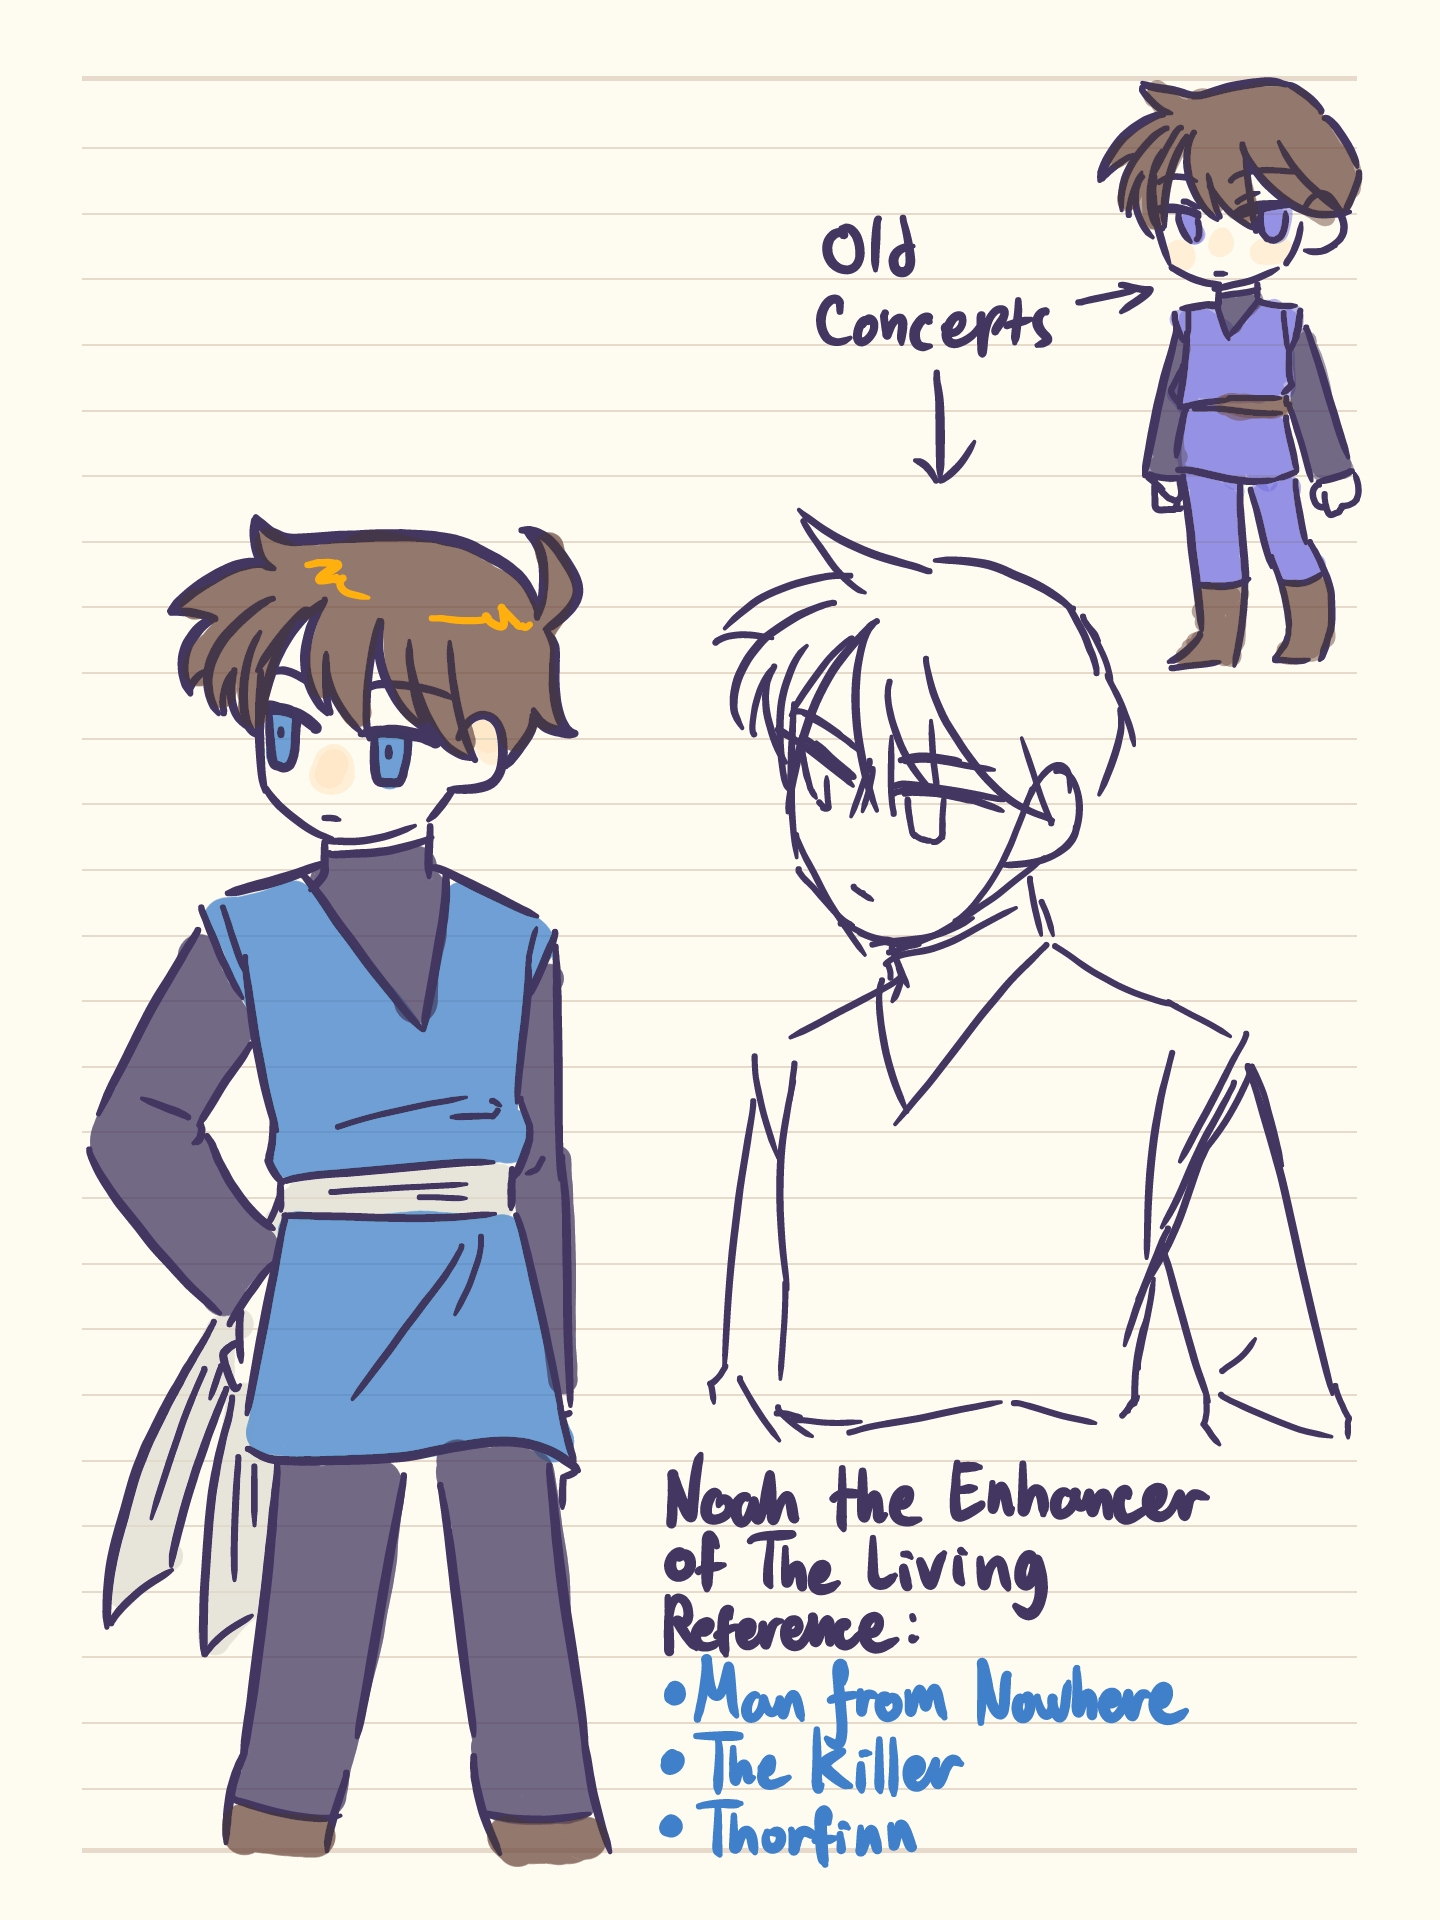 Old
Concepts
Noah the Enhancer
of The Living
Reference:
• Man from Nowhere
• The Killer
• Thorfinn